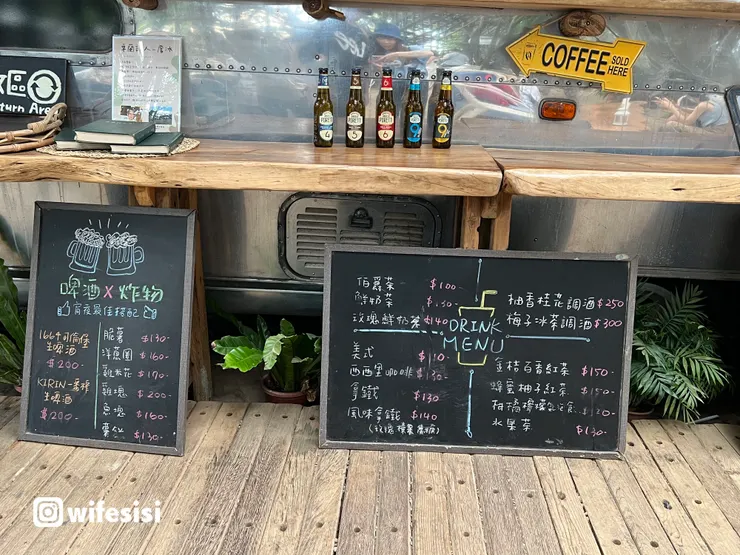 區
turn Area
COFFEE
SOLD
HERE
4
5
6
9
9
啤酒 X 炸物
宵夜最佳搭配
1664可倫堡
生啤酒
$200-
KIRIN一番榨
生啤酒
$200-
脆薯 $130-
洋蔥圈 $160-
雞米花 $170-
雞塊 $200-
魚塊 $160-
$130-
伯爵茶 $100-
鮮奶茶
玫瑰鮮奶茶 $140
美式 $110
西西里 $130-
拿鐵 $130
風味拿鐵 $140
DRINK
MENU
柚香桂花調酒 $250
梅子冰茶調酒 $300
金桔百香紅茶 $150-
蜂蜜柚子紅茶 $150-
水果茶 $130-
wifesisi